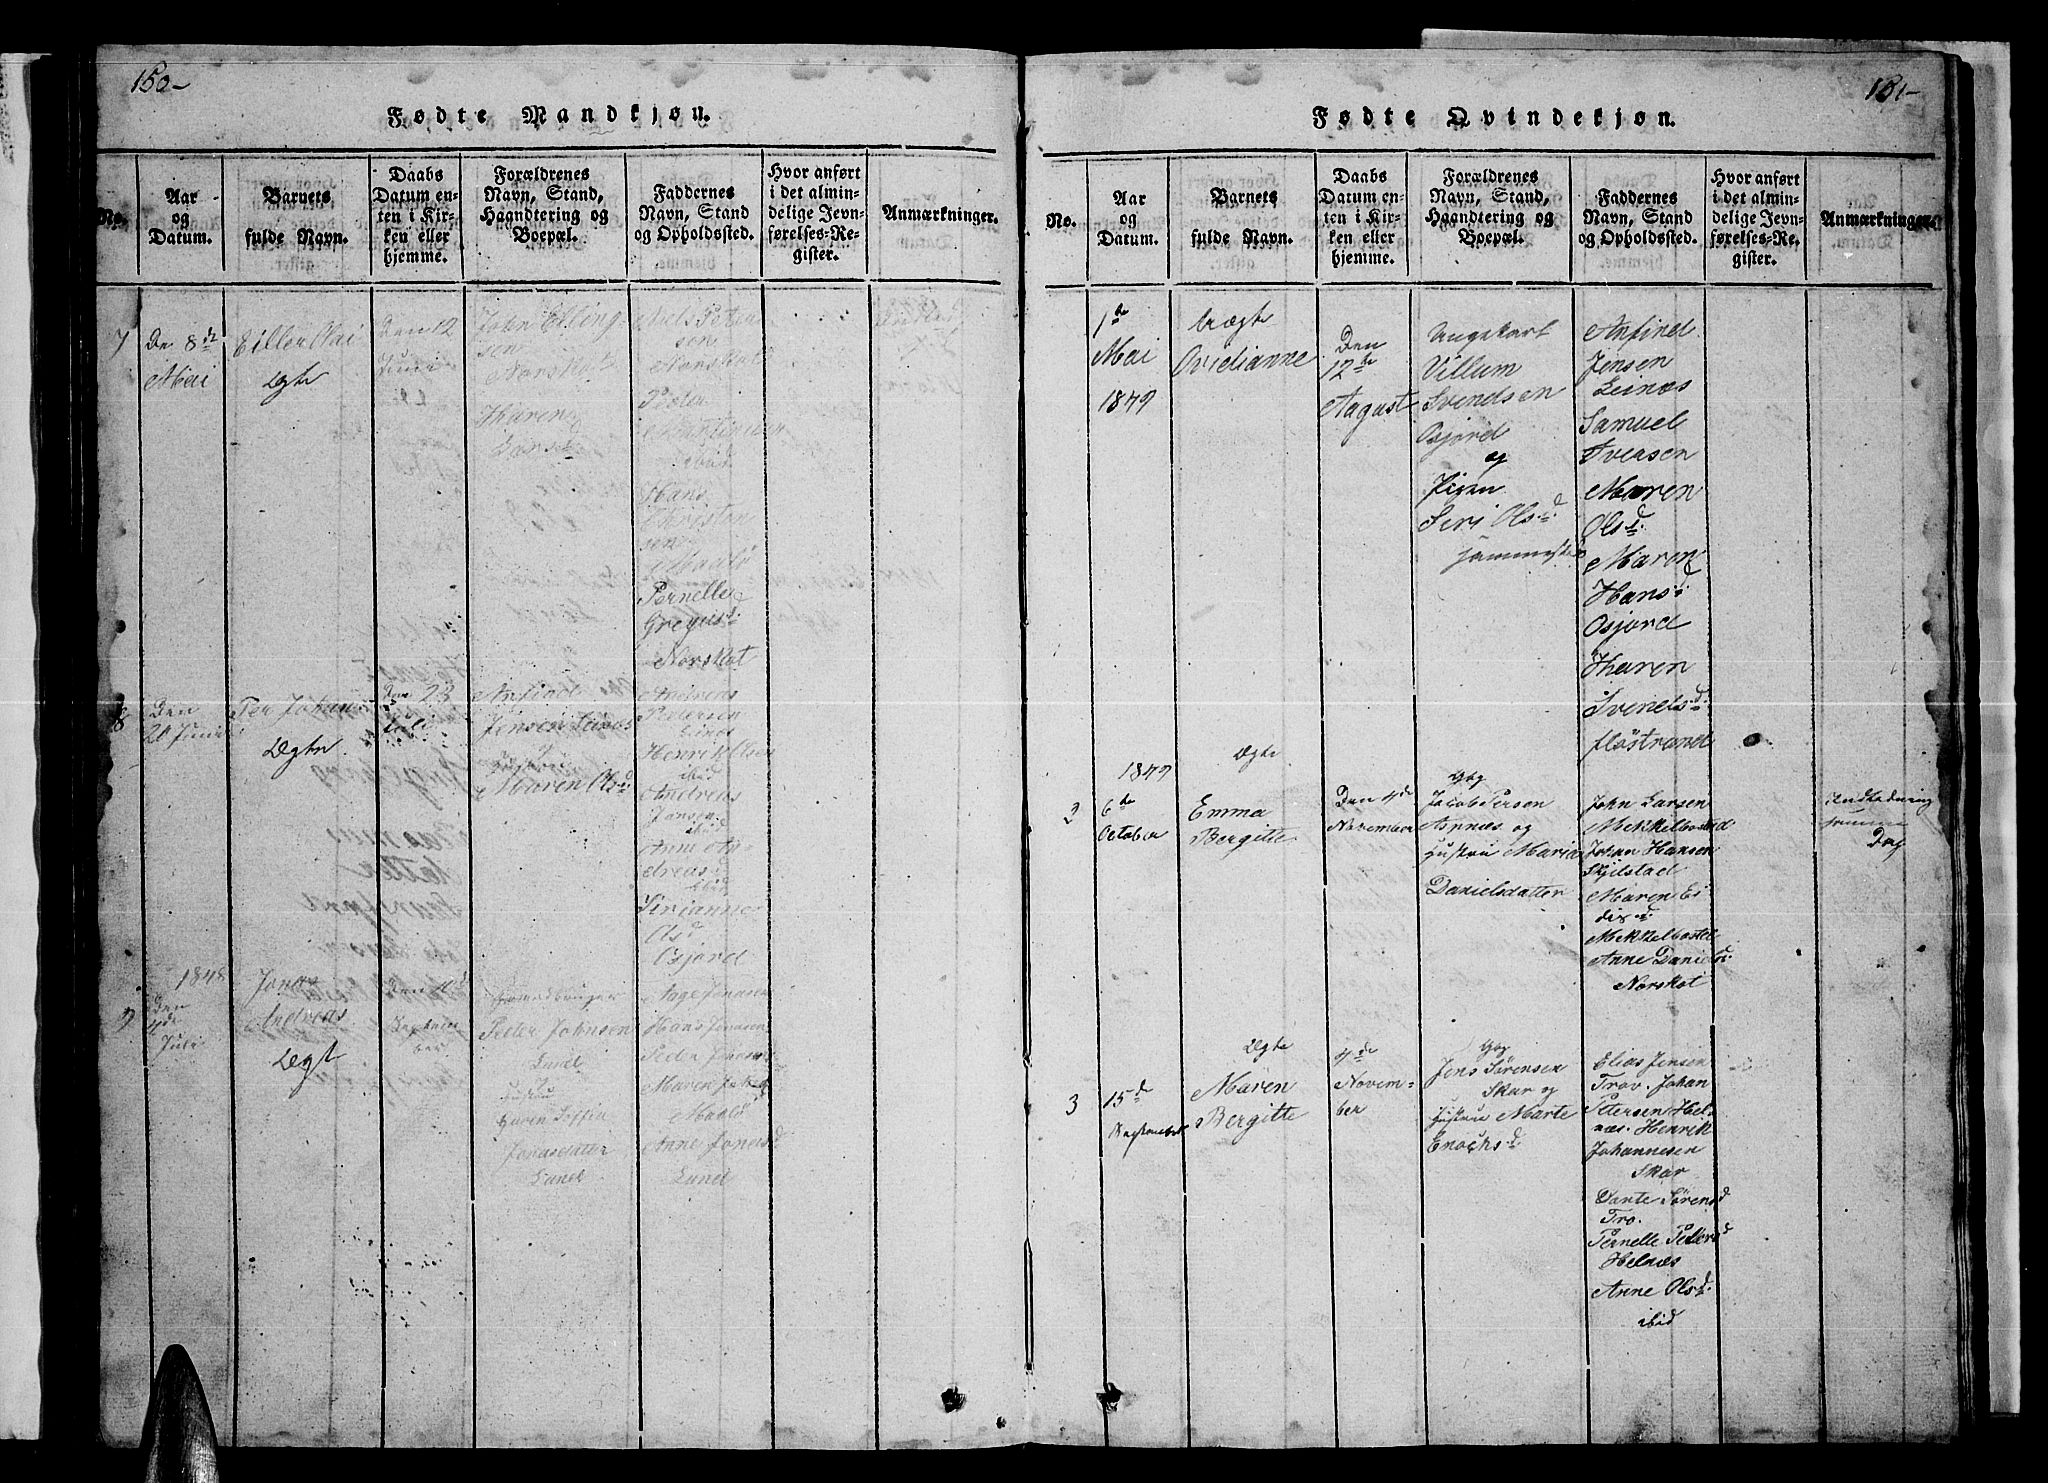 150-
Fødte Mandkjøn.
No.
Aar
og
Datum.
Barnets
fulde Navn.
Daabs
Datum en-
ten i Kir-
ken eller
hjemme.
Forældrenes
Navn, Stand,
Haandtering og
Boepæl.
Faddernes
Navn, Stand
og Opholdssted.
Hvor anført
i det almin-
delige Jevn-
førelses-Re-
gister.
Anmærkninger.
7
De 8de
Mai
Eiller Olai
Ægte
Den 12
Juni
John Elling
sen
Norskot
Karen
Larsd
Niels Peter
sen
Norskot
Peder
Martinusen
ibid
Hans
Christen
sen
Maalø
Pernelle
Gregusd:
Norskot
8
Den
20 Juni
Peu Johan
Ægte
Den 23
Juli
Anfind
Jensen Leinæs
og
Hustru
Maren Olsd
Andreas
Pedersen
Leinæs
Henrik Olsen
ibid
Andreas
Jansen
ibid
Anne An-
dreasd
ibid
Sirianne
Olsd
Osjord
9
1848
Den
4de
Juli
Jonas
Andreas
Ægt
Den
Septem
ber
Gaardbruger
Peder Johnsen
Lund
Hustru
Karen
Jonasdatter
Lund
Aage Jonasen
Hans Jonasen
Peder
Maren
Maalø
Anne Jonasd
Lund
151-
Fødte Qvindekjøn.
No.
Aar
og
Datum.
Barnets
fulde Navn.
Daabs
Datum en-
ten i Kir-
ken eller
hjemme.
Forældrenes
Navn, Stand,
Haandtering og
Boepæl.
Faddernes
Navn, Stand
og Opholdssted.
Hvor anført
i det almin-
delige Jevn-
førelses-Re-
gister.
Anmærkninger.
1de
Mai
1849
Uægte
Ovedianne
Den
12te
August
Ungekarl
Villum
Svendsen
Osjord
og
Pigen
Siri Olsd:
sammested
Anfind
Jensen
Leinæs
Samuel
Iversen
Maren
Olsd:
Maren
Hansd:
Osjord
Karen
Svendsd:
flostrand
2
1849
6te
October
Ægte
Emma
Bergitte
Den 4de
November
Gbg
Jacob Persen
Asnæs og
Hustru Maria
Danielsdatter
John Larsen
Mekkelbosted
Johan Hansen
Skjilstad
Maren Es
dixd:
Mekkelbosted
Anne Danielsd:
Norskot
Indledning
samme
Dag
3
15d
September
Ægte
Maren
Bergitte
4de
Novem-
ber
Gbg
Jens Sørensen
Skar og
Hustru Marte
Enochsd:
Elias Jensen
Trov. Johan
Petersen Hel-
næs. Henrik
Johannesen
Skar
Dante Sørensd
Tro.
Pernelle Pedersd
Helnæs
Anne Olsd:
ibid